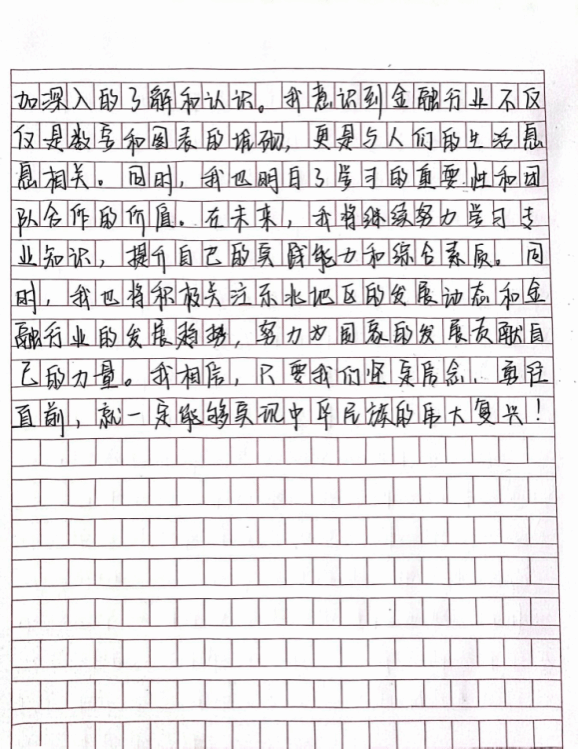 加深入的了解和认识。我意识到金融行业不仅
仅是数字和图表的堆砌，更是与人们的生活息
息相关。同时，我也明白了学习的重要性和团
队合作的价值。在未来，我将继续努力学习专
业知识，提升自己的实践能力和综合素质。同
时，我也将积极关注东北地区的发展动态和金
融行业的发展趋势，努力为国家的发展贡献自
己的力量。我相信，只要我们坚定信念、勇往
直前，就一定能够实现中华民族的伟大复兴！